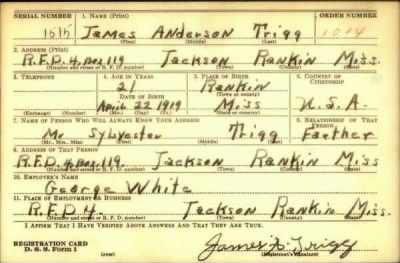 SERIAL NUMBER 1. NAME (Print) ORDER NUMBER
1515 James Anderson Trigg 1014
(First) (Middle) (Last)
2. ADDRESS (Print)
R.F.D. 4, Box 119 Jackson Rankin Miss.
(Number and street or R. F. D. number) (Town) (County) (State)
3. TELEPHONE 4. AGE IN YEARS 5. PLACE OF BIRTH 6. COUNTRY OF CITIZENSHIP
21 Rankin
DATE OF BIRTH (Town or county)
April 22 1919 Miss U.S.A.
(Exchange) (Number) (Mo.) (Day) (Yr.) (State or country)
7. NAME OF PERSON WHO WILL ALWAYS KNOW YOUR ADDRESS 8. RELATIONSHIP OF THAT PERSON
Mr Sylvester Trigg Farther
(Mr., Mrs., Miss) (First) (Middle) (Last)
9. ADDRESS OF THAT PERSON
R.F.D. 4, Box 119. Jackson Rankin Miss
(Number and street or R. F. D. number) (Town) (County) (State)
10. EMPLOYER'S NAME
George White
11. PLACE OF EMPLOYMENT OR BUSINESS
R.F.D. 4. Jackson Rankin Miss.
(Number and street or R. F. D. number) (Town) (County) (State)
I AFFIRM THAT I HAVE VERIFIED ABOVE ANSWERS AND THAT THEY ARE TRUE.
REGISTRATION CARD
D. S. S. Form 1 (over) James A. Trigg
(Registrant's signature)